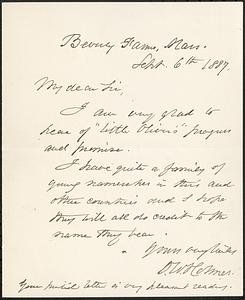 Beverly Farms, Mass.
Sept. 6th 1887.
My dear Sir,
I am very glad to
hear of "little Oliver's" progress
and promise.
I have quite a family of
young namesakes in this and
other countries and I hope
they will all do credit to the
name they bear.
Yours very truly
O. W. Holmes.
Your printed letter is very pleasant reading.